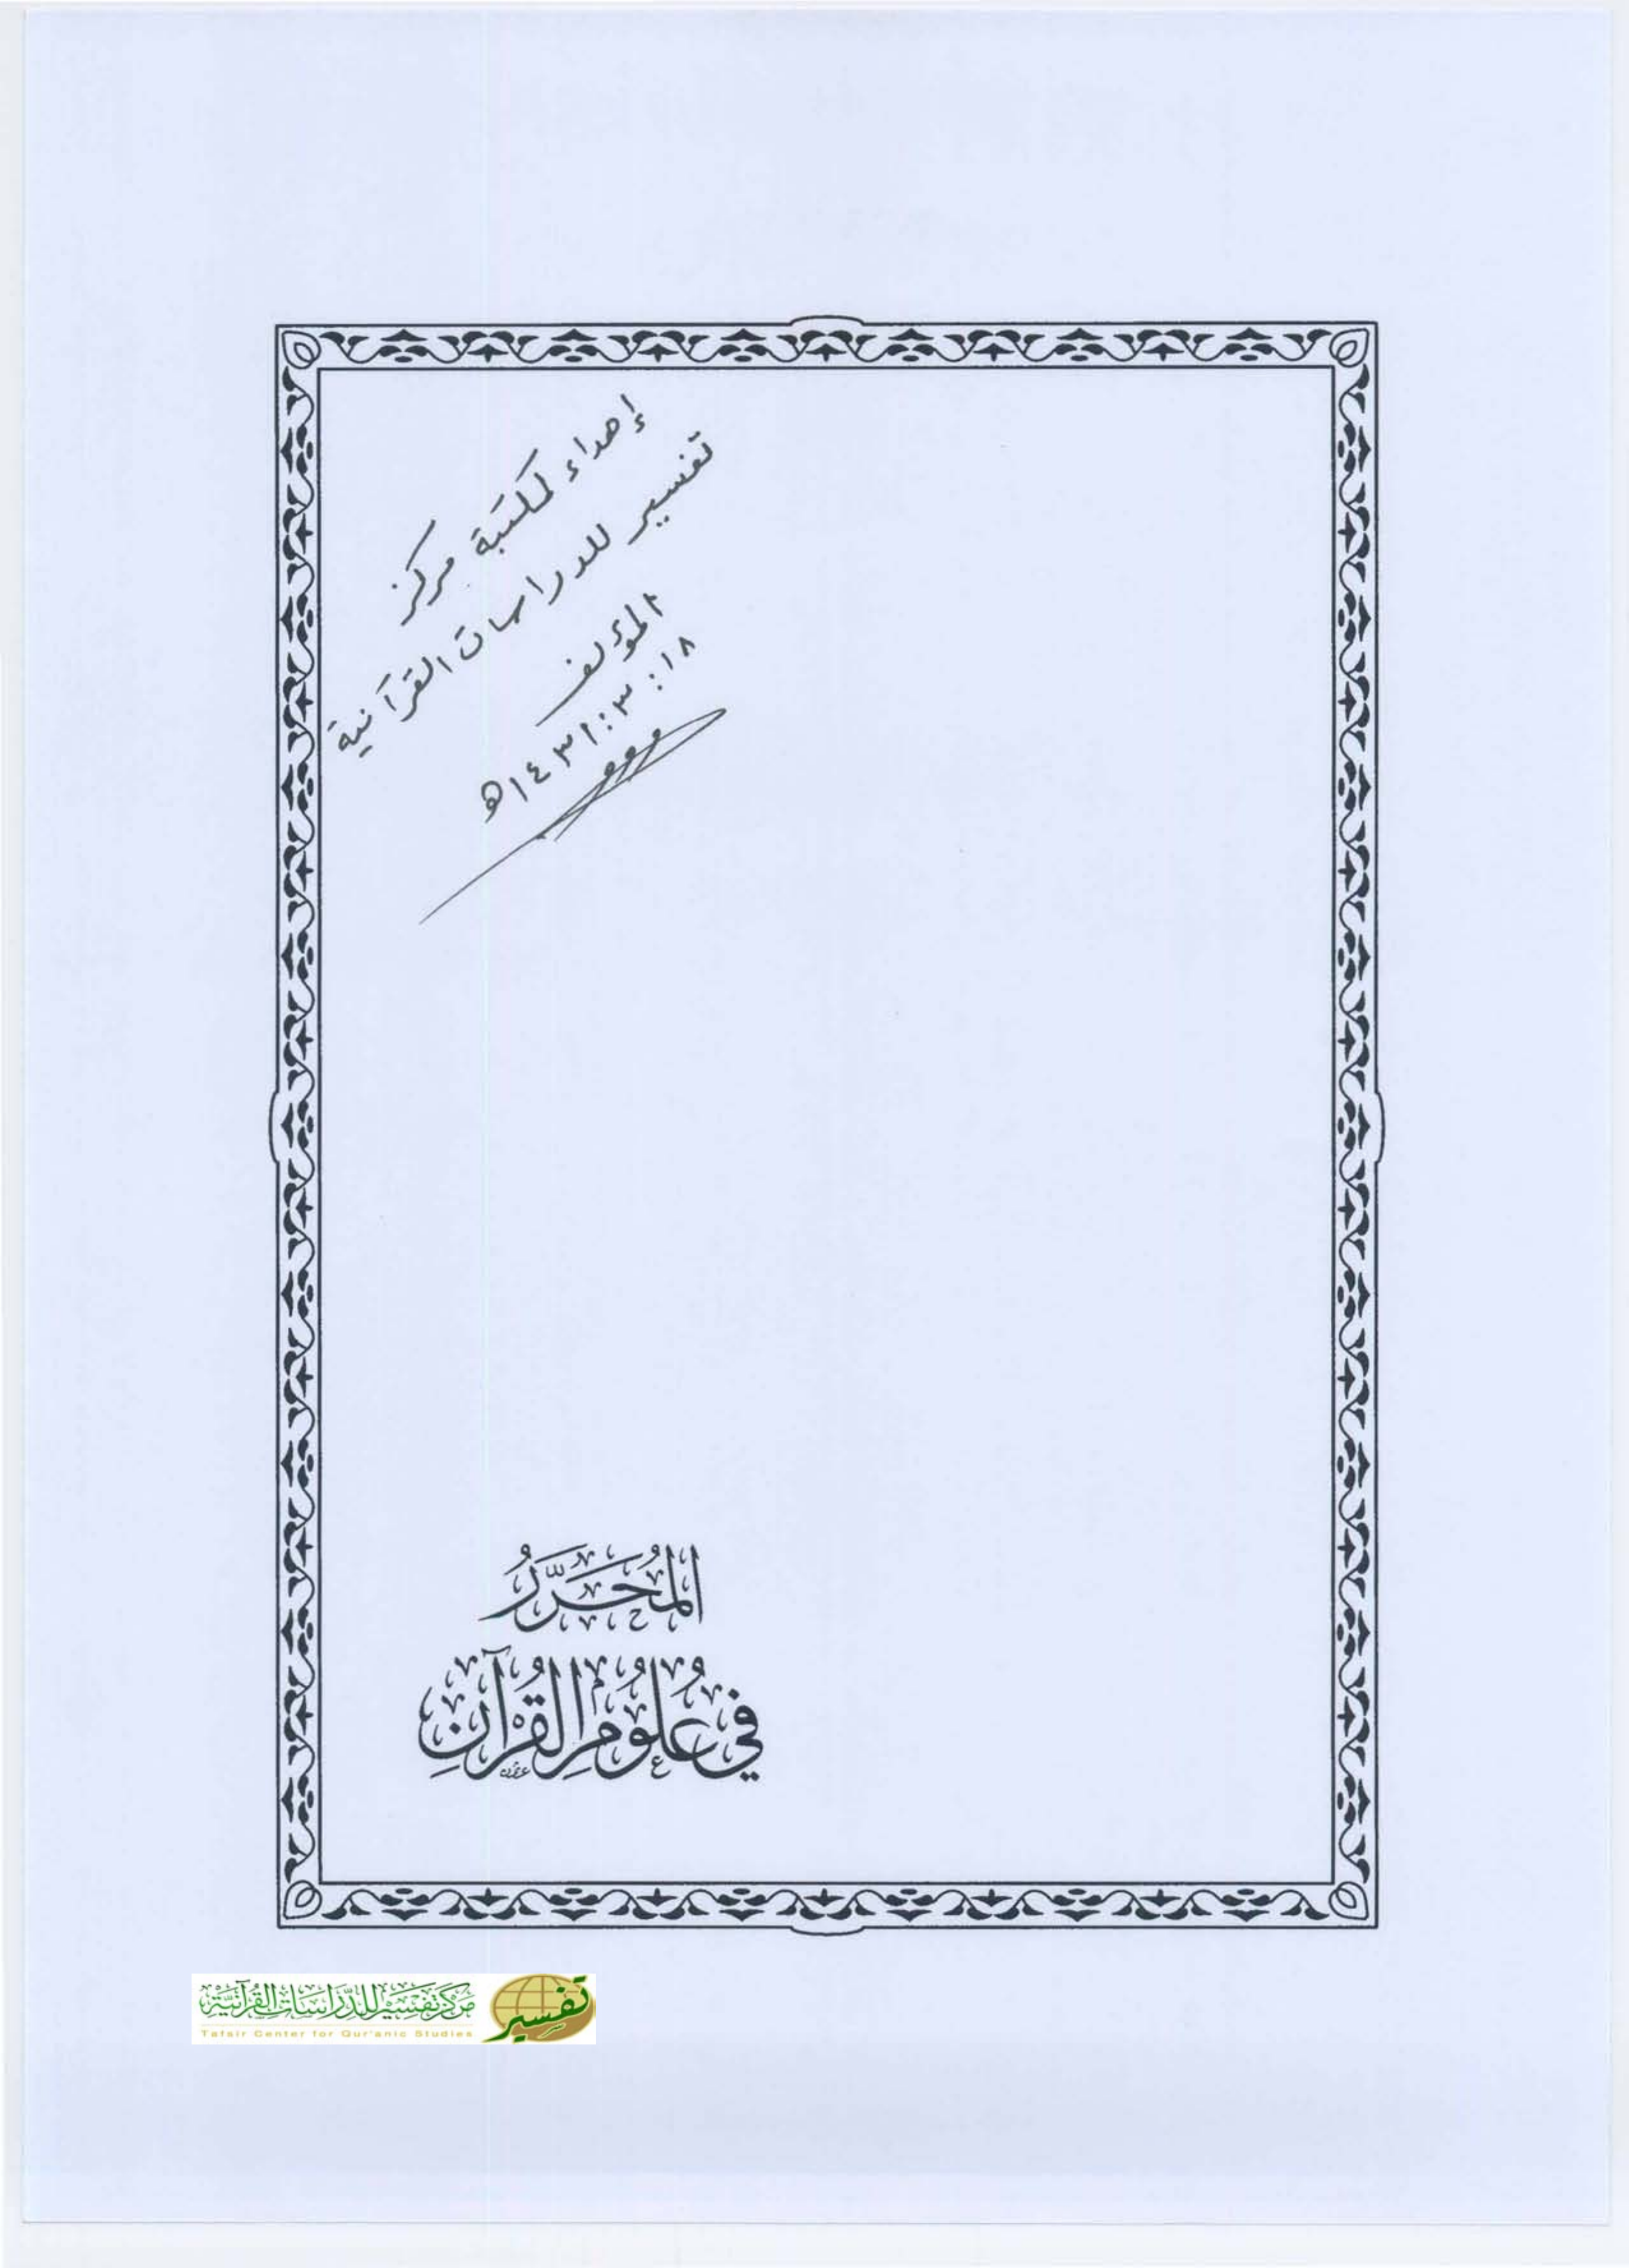 إهداء لمكتبة مركز
تفسير للدراسات القرآنية
المؤلف
١٨: ٣: ١٤٣١هـ
المُحَرَّرُ
في عُلُومِ القُرْآنِ
مركز تفسير للدراسات القرآنية
تفسير
Tafsir Center for Qur'anic Studies